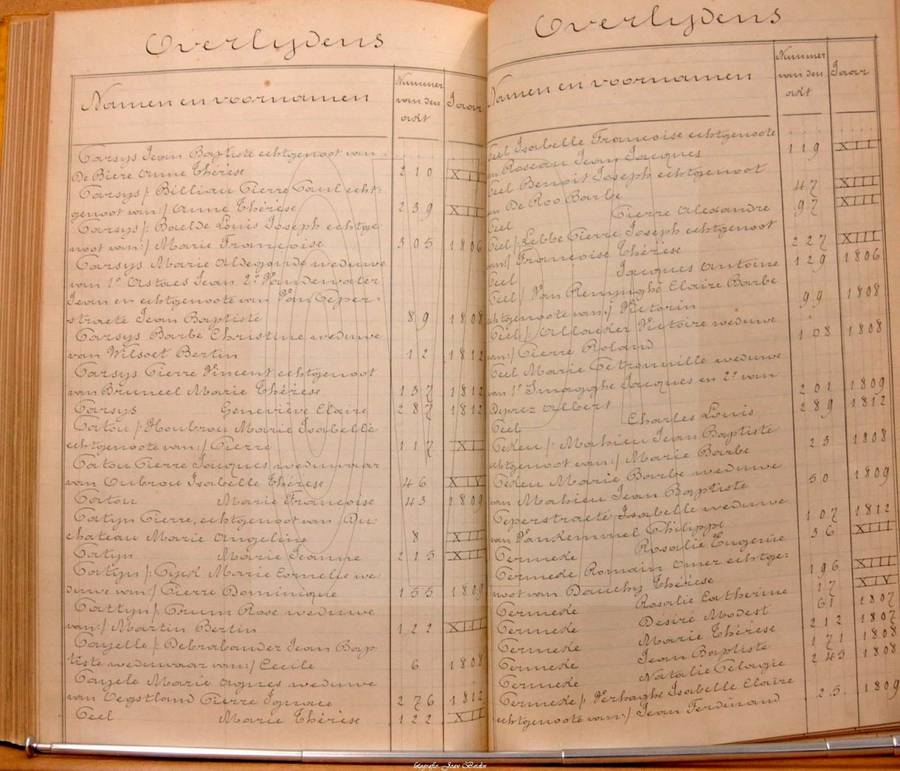 Overlijdens
Namen en voornamen
Nummer van den
Jaar
Tarsys Jean Baptiste echtgenoot van
De Biere Anne Thérèse 210 XII
Tarsys /: Billiau Pierre Paul echt-
genoot van :/ Anne Thérèse 239 XII
Tarsys /: Baelde Louis Joseph echtge
noot van :/ Marie Françoise 305 1806
Tarsys Marie Aldegonde weduwe
van 1° Jean 2° Vandenwater
Jean en echtgenoote van Van Teper-
straete Jean Baptiste 89 1808
Tarsys Barbe Christine weduwe
van Wilsoet Bertin 12 1812
Tarsys Pierre Vincent echtgenoot
van Bruneel Marie Thérèse 137 1812
Tarsys Geneviève Claire 287 1812
Tatou /: Houbrou Marie Isabelle
echtgenoote van :/ Pierre 117
Tatou Pierre Jacques weduwaar
van Oubrou Isabelle Thérèse 46
Tatou Marie Françoise 43 1809
Tatyn Pierre, echtgenoot van Du
chateau Marie Angeline 8
Tatyn Marie Jeanne 213
Tatyn /: Marie Cornelie we
duwe van :/ Pierre Dominique 155 1809
Tattyn /: Rose weduwe
van :/ Martin Bertin 122
Tayelle /: Debrabander Jean Bap
tiste weduwaar van :/ Cecile 6 1808
Tayele Marie Agnes weduwe
van Pierre Ignace 276 1812
Teel Marie Thérèse 122
Overlijdens
Namen en voornamen
Nummer van den
Jaar
Teel Isabelle Françoise echtgenoote
Roseau Jean Jacques 119 XII
Teel Benoit Joseph echtgenoot
De Roo Barbe 47 XIII
Teel Pierre Alexandre 97 XIII
Teel /: Lebbe Pierre Joseph echtgenoot
van :/ Françoise Thérèse 227 XIII
Teel Jacques Antoine 129 1806
Teel /: Van Claire Barbe
echtgenoote van :/ Victorin 99 1808
Teel /: Victoire weduwe
van :/ Pierre Roland 108 1808
Teel Marie Petronille weduwe
van 1° Jacques en 2° van
Albert 201 1809
Teel Charles Louis 289 1812
Teken /: Mahieu Jean Baptiste
echtgenoot van :/ Marie Barbe 23 1808
Teken Marie Barbe weduwe
van Mahieu Jean Baptiste 50 1809
Teperstraete Isabelle weduwe
van Vankemmel Philippe 107 1812
Termede Rosalie Eugenie 36 XIII
Termede Romain Omer echtge-
noot van Dauchy Thérèse 196 XIII
Termede Rosalie Catherine 17 XIV
Termede Desiré Modest 61 1807
Termede Marie Thérèse 212 1807
Termede Jean Baptiste 171 1808
Termede Natalie Pelagie 243 1808
Termede /: Verhaghe Isabelle Claire
echtgenoote van :/ Jean Ferdinand 25 1809